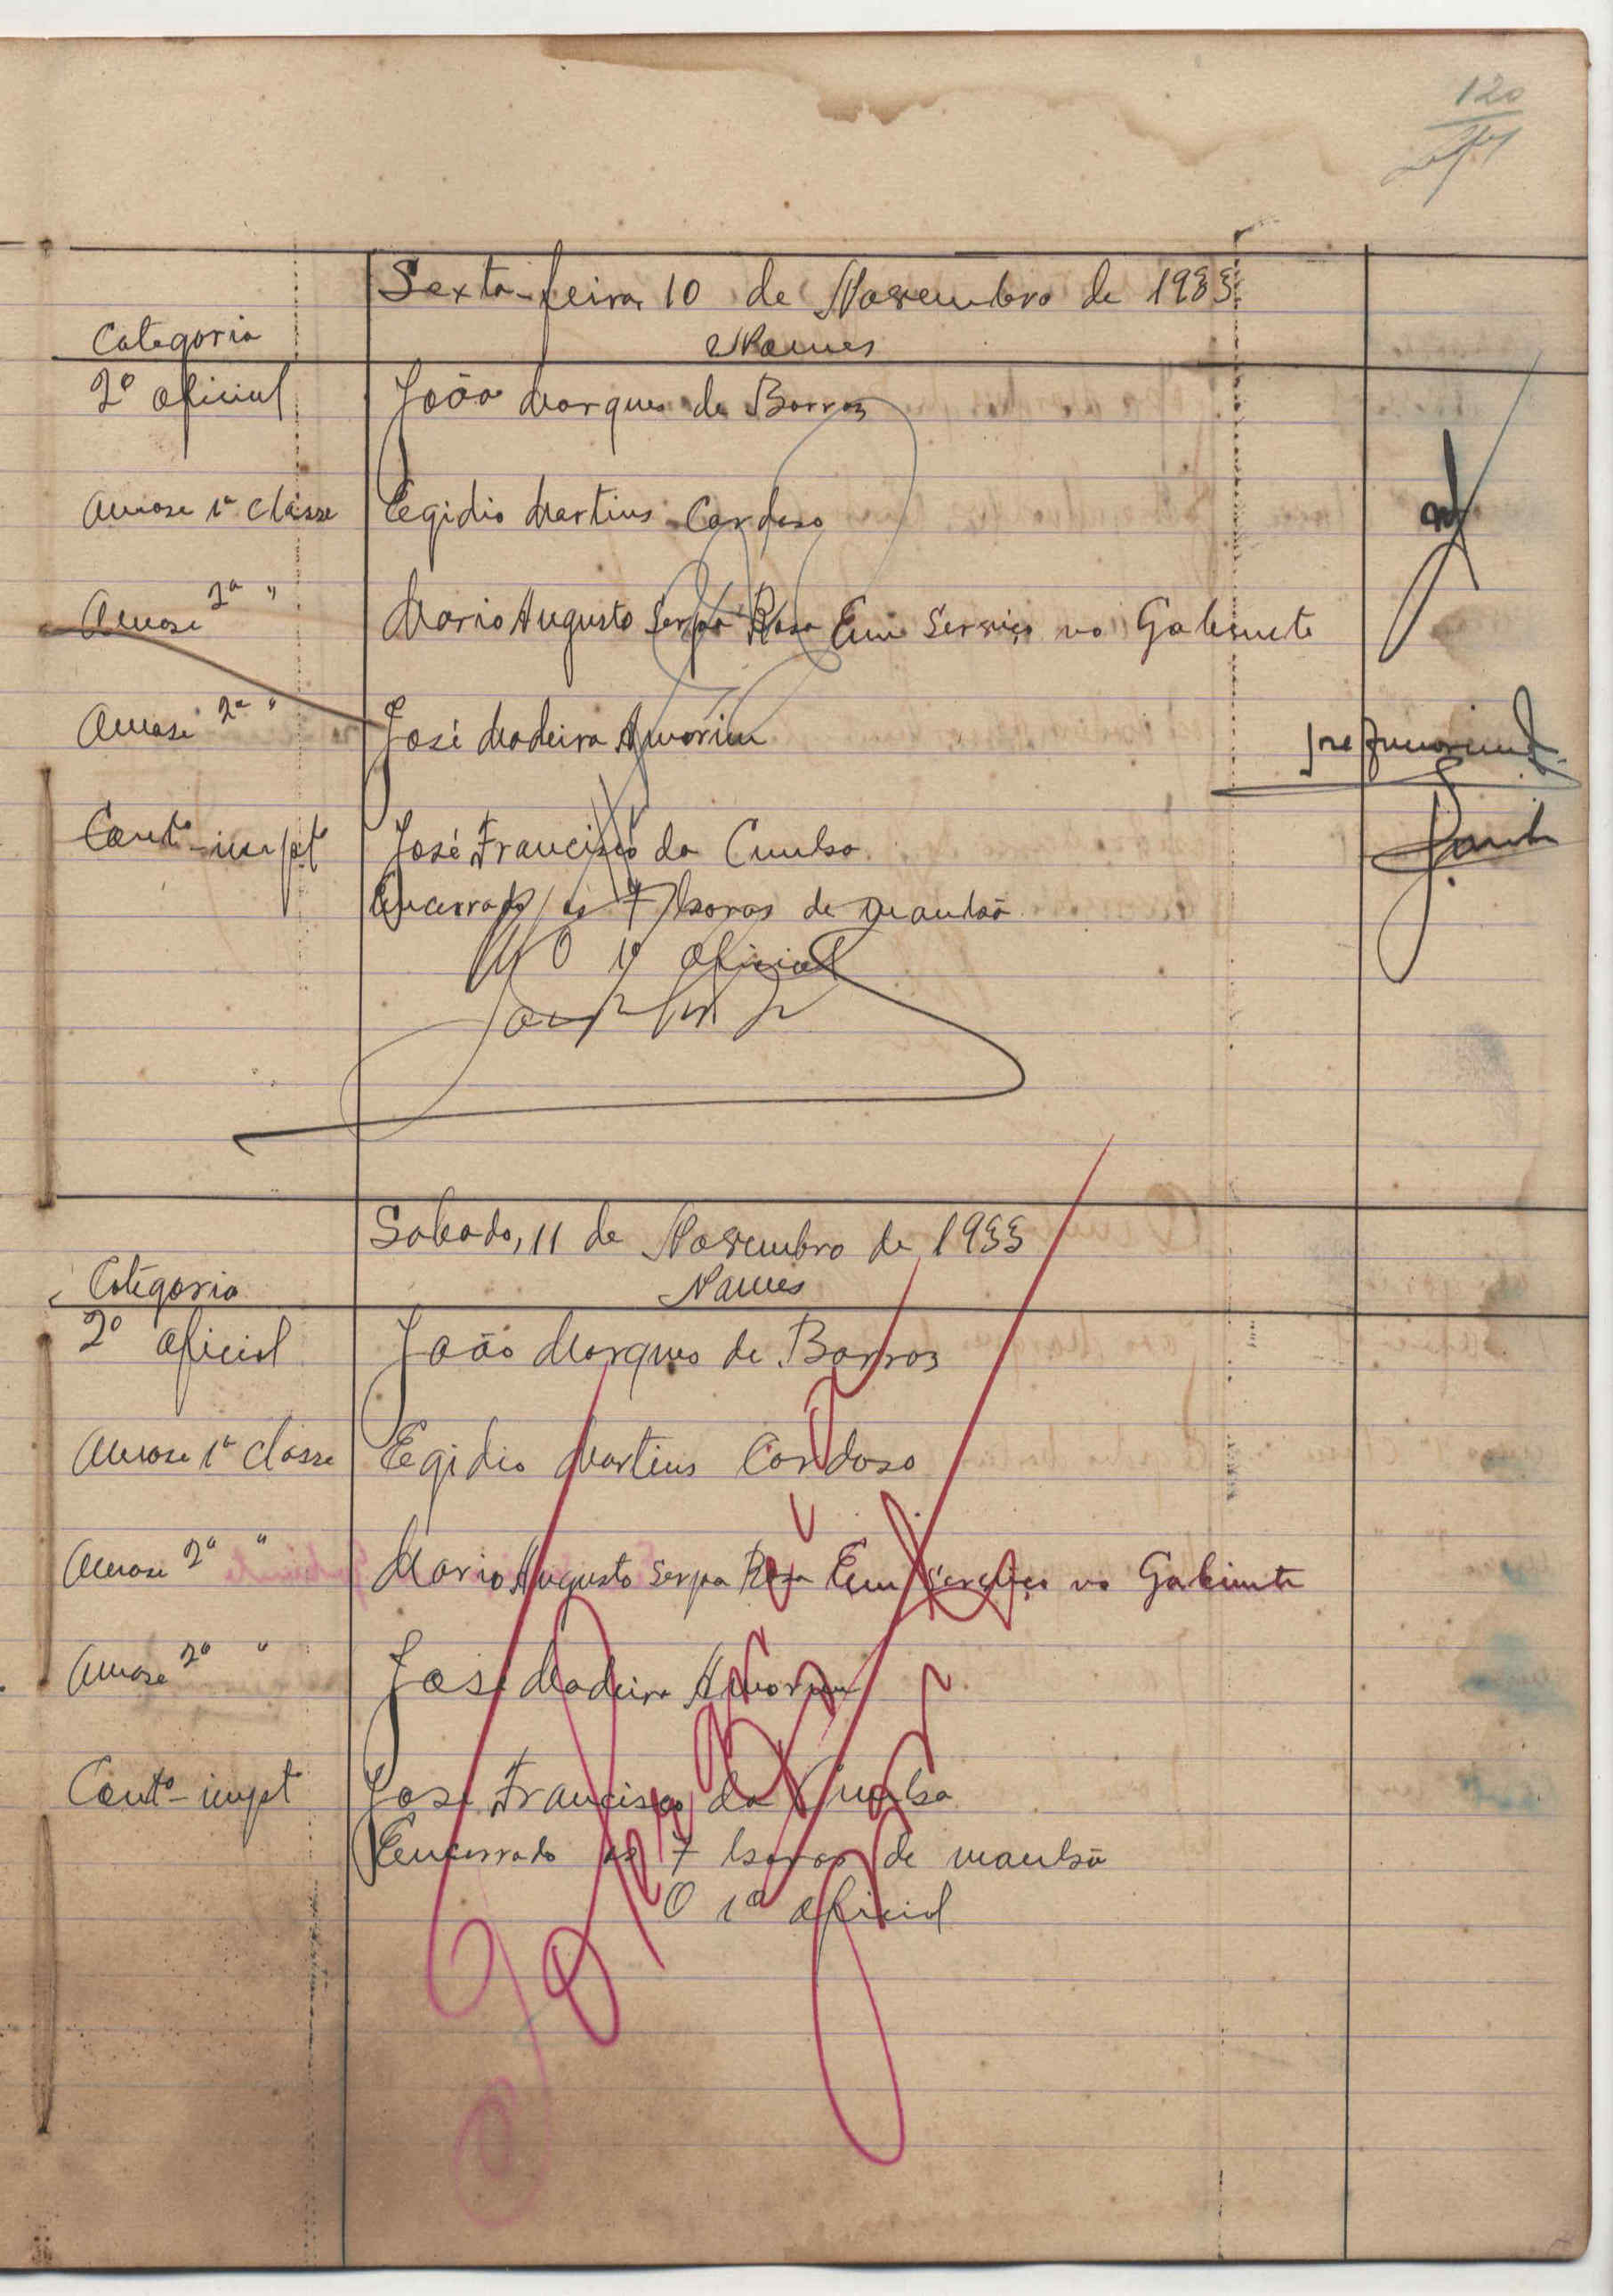 120
Sexta-feira, 10 de Novembro de 1933
Categoria Nomes
2º oficial João Marques de Barros
1ª classe Egidio Martins Cardoso
2ª " Mario Augusto Serpa Rosa Em Serviço no Gabinete
2ª " José Madeira Amorim José Amorim
Contº-impt José Francisco da Cunha
Encerrado ás 7 horas de manhã
O 1º oficial
Sabado, 11 de Novembro de 1933
Categoria Nomes
2º oficial João Marques de Barros
1ª classe Egidio Martins Cardoso
2ª " Mario Augusto Serpa Rosa Em Serviço no Gabinete
2ª " José Madeira Amorim
Contº-impt José Francisco da Cunha
Encerrado as 7 horas de manhã
O 1º oficial